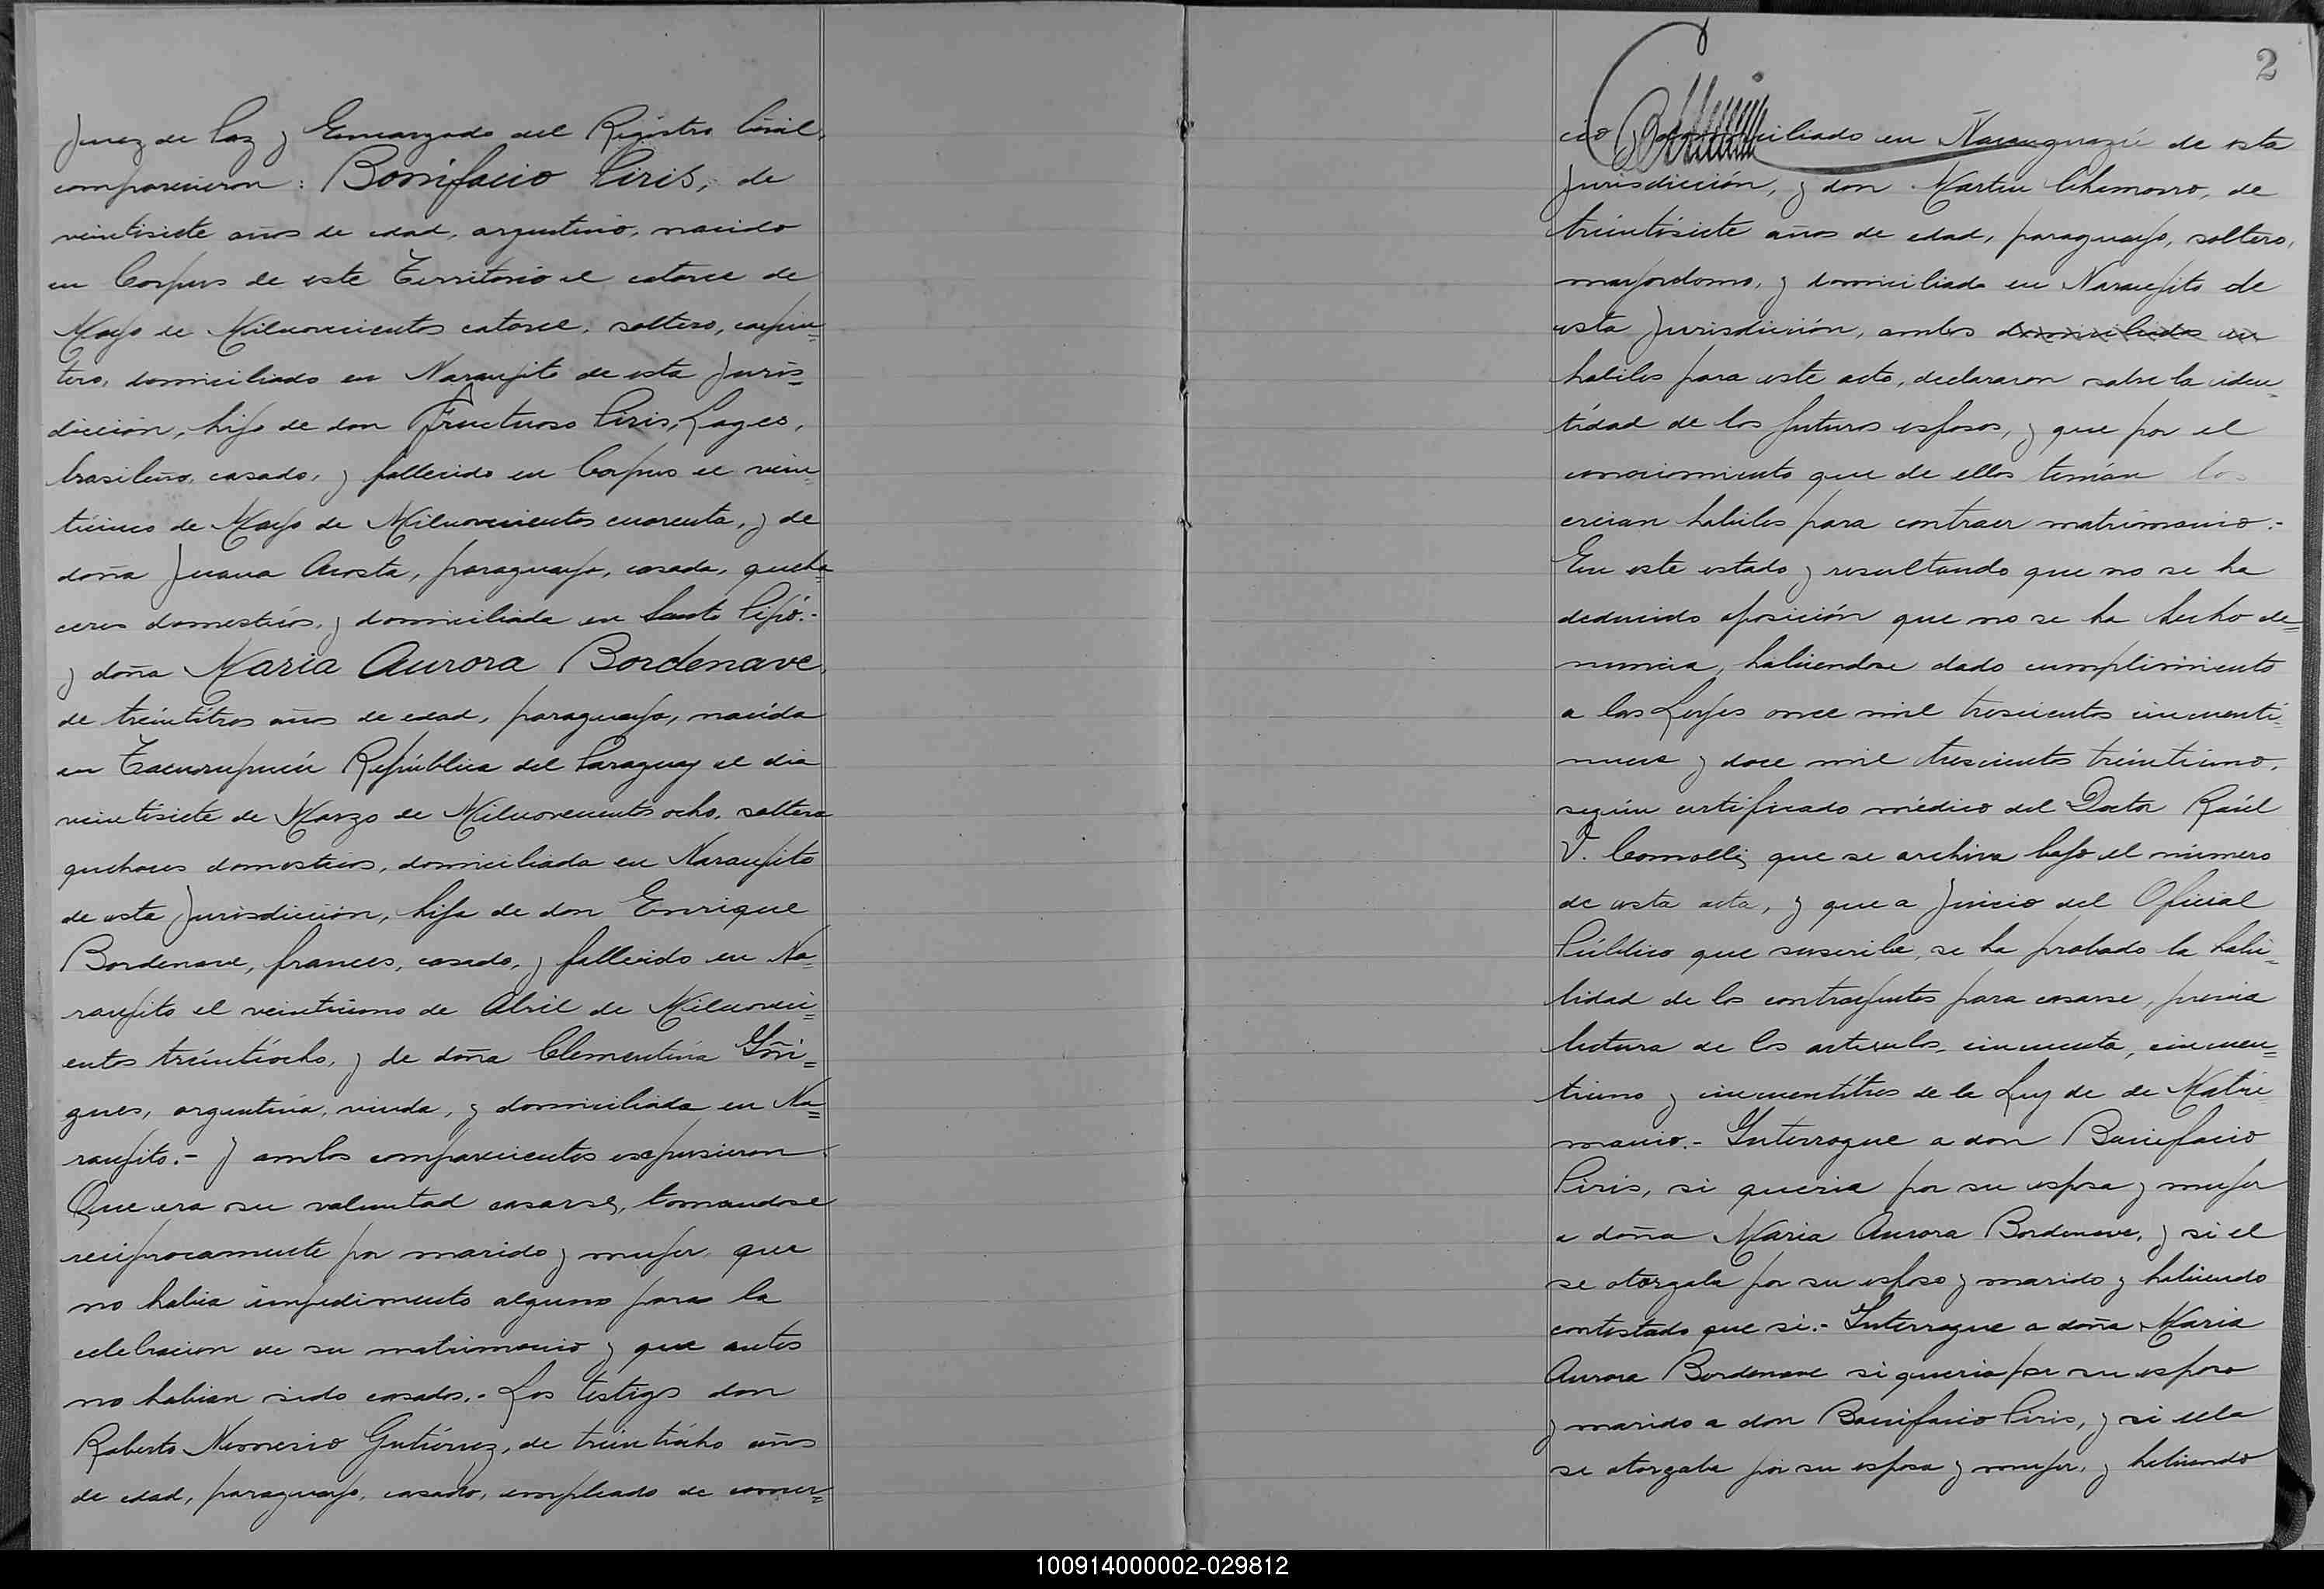 Juez de Paz y Encargado del Registro Civil,
comparecieron: Bonifacio Piris, de
veintisiete años de edad, argentino, nacido
en Corpus de este Territorio el catorce de
Mayo de Milnovecientos catorce, soltero, carpin=
tero, domiciliado en Naranjito de esta Juris=
dicción, hijo de don Fructuoso Piris, Lageo,
brasileño, casado, y fallecido en Corpus el vein=
ticinco de Mayo de Milnovecientos cuarenta, y de
doña Juana Acosta, paraguaya, casada, queha=
ceres domesticos, y domiciliada en Santo Pipó.-
y doña Maria Aurora Bordenave,
de treintitres años de edad, paraguaya, nacida
en República del Paraguay el dia
veintisiete de Marzo de Milnovecientos ocho, soltera
quehaceres domesticos, domiciliada en Naranjito
de esta Jurisdicción, hija de don Enrique
Bordenave, frances, casado, y fallecido en Na=
ranjito el veintiuno de Abril de Milnoveci=
entos treintiocho, y de doña Clementina Yñi=
gues, argentina, viuda, y domiciliada en Na=
ranjito.- Y ambos comparecientes expusieron
Que era su voluntad casarse, tomandose
reciprocamente por marido y mujer, que
no habia impedimento alguno para la
celebracion de su matrimonio y que antes
no habian sido casados.- Los testigos don
Roberto Nemesio Gutiérrez, de treintiocho años
de edad, paraguayo, casado, empleado de comer=
2
cio domiciliado en Ñacanguazú de esta
Jurisdicción, y don Martin Chamorro, de
treintisiete años de edad, paraguayo, soltero,
mayordomo, y domiciliado en Naranjito de
esta Jurisdicción, ambos domiciliados en
habiles para este acto, declararon sobre la iden=
tidad de los futuros esposos, y que por el
conocimiento que de ellos tenian los
creian habiles para contraer matrimonio.-
En este estado y resultando que no se ha
deducido oposición que no se ha hecho de=
nuncia, habiendose dado cumplimiento
a las Leyes once mil trescientos cincuenti=
nueve y doce mil trescientos treintiuno,
según certificado médico del Doctor Raúl
V. Comolli, que se archiva bajo el número
de esta acta, y que a Juicio del Oficial
Público que suscribe, se ha probado la habi=
lidad de los contrayentes para casarse, previa
lectura de los articulos, cincuenta, cincuen=
tiuno y cincuentitres de la Ley de de Matri
monio.- Interrogue a don Bonifacio
Piris, si queria por su esposa y mujer
a doña Maria Aurora Bordenave, y si el
se otorgaba por su esposo y marido y habiendo
contestado que si.- Interrogue a doña Maria
Aurora Bordenave si queria por su esposo
y marido a don Bonifacio Piris, y si ella
se otorgaba por su esposa y mujer, y habiendo
100914000002-029812